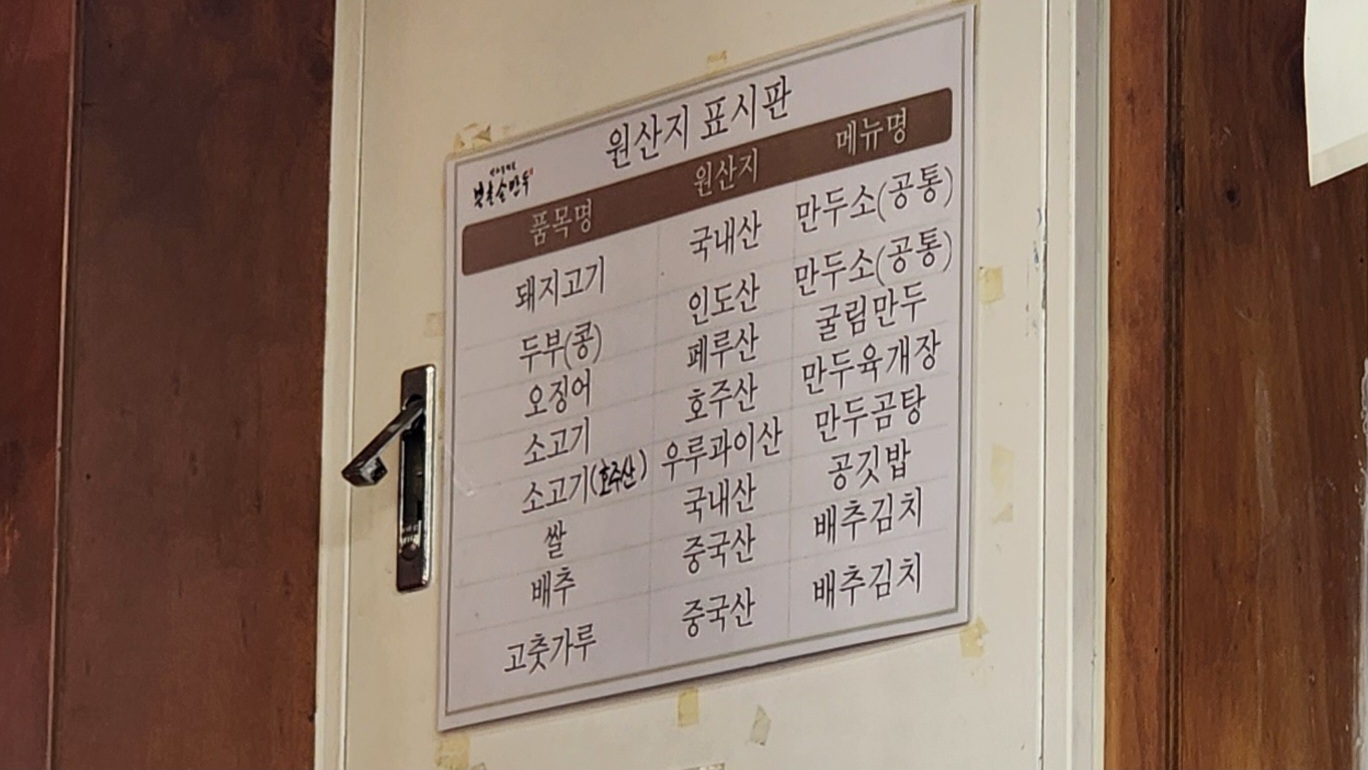 원산지 표시판
북촌손만두
품목명 원산지 메뉴명
돼지고기 국내산 만두소(공통)
두부(콩) 인도산 만두소(공통)
오징어 페루산 굴림만두
소고기 호주산 만두육개장
소고기(호주산) 우루과이산 만두곰탕
쌀 국내산 공깃밥
배추 중국산 배추김치
고춧가루 중국산 배추김치